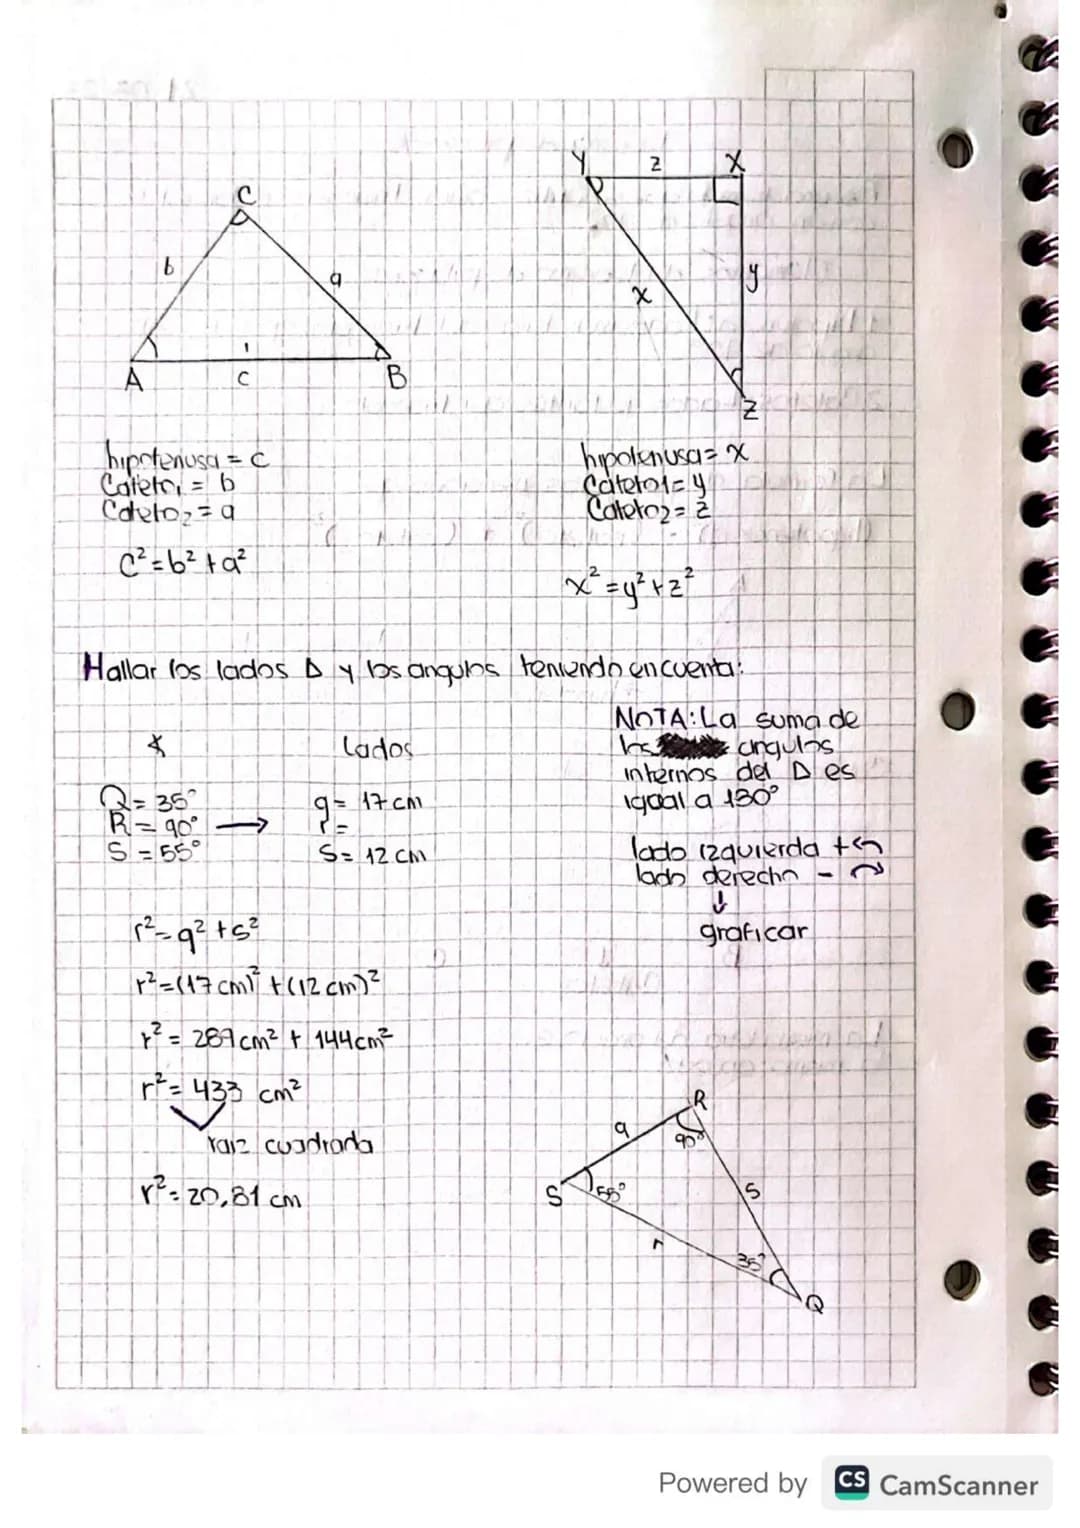 C
b
a
A
c
B
hipotenusa = c
Cateto₁ = b
Cateto₂ = a
C² = b² + a²
Y
z
X
x
y
Z
hipotenusa = x
Cateto1 = y
Cateto2 = z
x² = y² + z²
Hallar los lados Δ y los angulos teniendo en cuenta:
∡
Lados
Q = 35°
R = 90° →
S = 55°
q = 17 cm
r =
S = 12 cm
NOTA: La suma de
los angulos
internos del Δ es
igual a 180°
lado izquierda + ↶
lado derecho - ↷
↓
graficar
r² = q² + s²
r² = (17 cm)² + (12 cm)²
r² = 289 cm² + 144 cm²
r² = 433 cm²
raiz cuadrada
r² = 20,81 cm
R
q
90°
S
55°
s
r
35°
Q
Powered by CS CamScanner